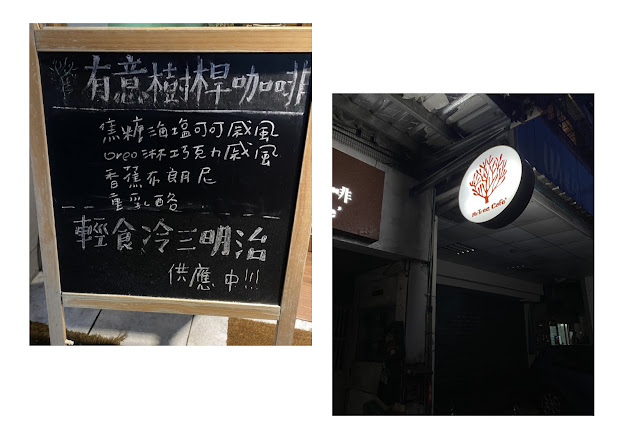 有意樹桿咖啡
焦糖海塩可可戚風
Oreo淋巧克力戚風
香蕉布朗尼
重乳酪
輕食冷三明治
供應中!!!
Tree Café
啡